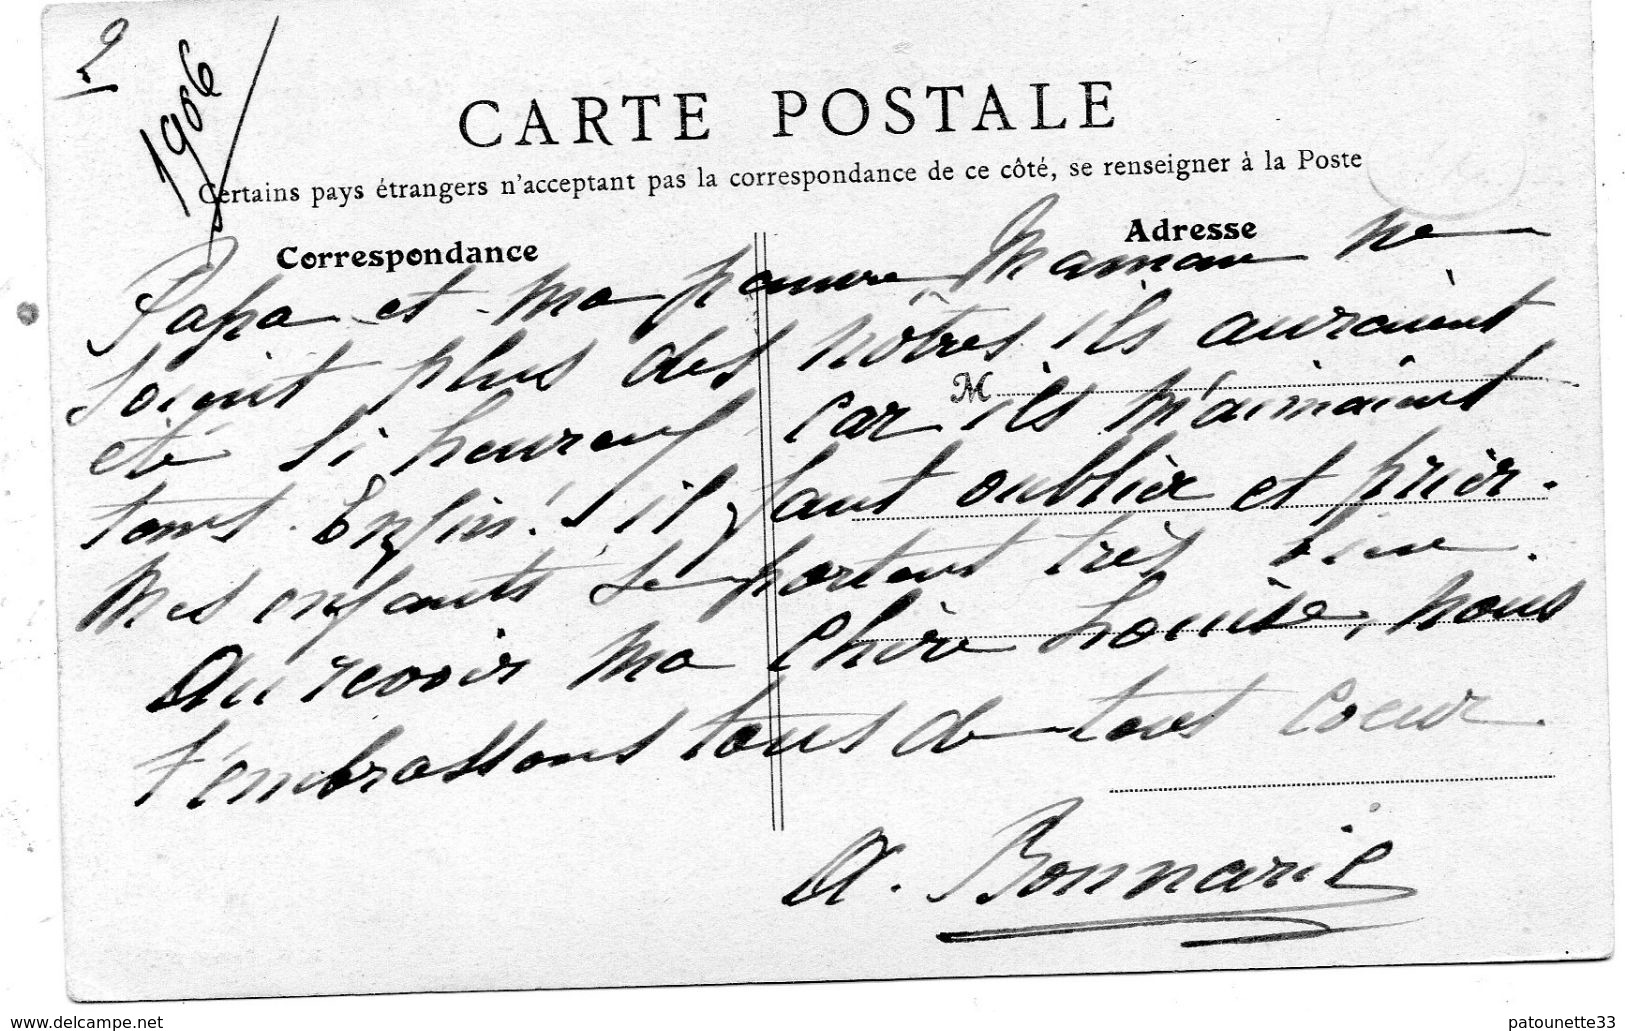 2
1906
CARTE POSTALE
Certains pays étrangers n'acceptant pas la correspondance de ce côté, se renseigner à la Poste
Correspondance
Adresse
Papa et ma pauvre Maman ne
soient plus des nôtres ils auraient
M
été si heureux car ils m'aimaient
tous. Enfin! il faut oublier et prier.
Mes enfants se portent très bien.
Au revoir ma chère Louise, nous
t'embrassons tous de tout coeur.
A. Bonnarie
www.delcampe.net
patounette33